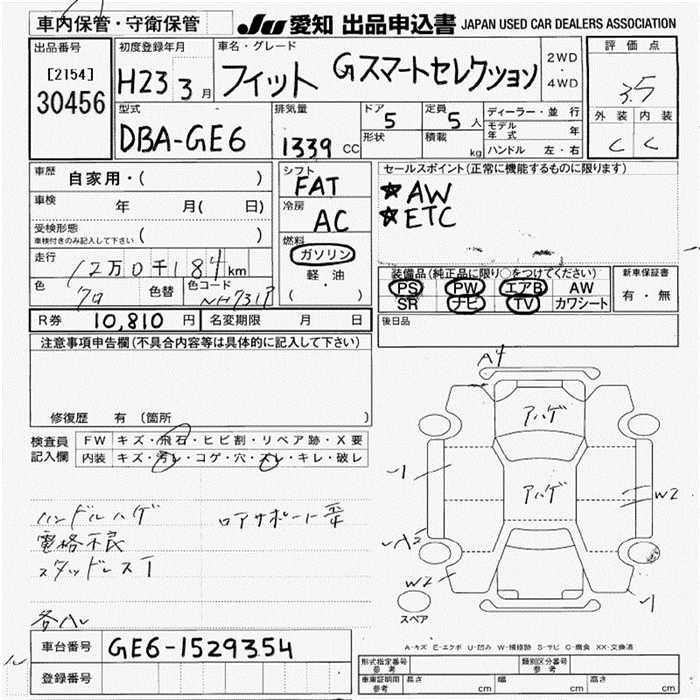 車内保管・守衛保管
JU 愛知 出品申込書 JAPAN USED CAR DEALERS ASSOCIATION
出品番号
[2154]
30456
初度登録年月
H23 3月
車名・グレード
フィット Gスマートセレクション
2WD
4WD
評価点
3.5
外装 内装
C C
型式
DBA-GE6
排気量
1339 CC
ドア
5
形状
定員
5人
積載
kg
ディーラー・並行
モデル年式 年
ハンドル 左・右
車歴 自家用・( )
車検 年 月( 日)
受検形態
車検付きのみ記入して下さい ( )
走行
12万0千184km
色
クロ
色替
色コード
NH731P
シフト
FAT
冷房
AC
燃料
ガソリン
軽油
( ・ )
セールスポイント(正常に機能するものに限ります)
★AW
★ETC
装備品(純正品に限り○をつけてください)
PS PW エアB AW
SR ナビ TV カワシート
新車保証書
有・無
R券 10,810 円 名変期限 月 日
後日品
注意事項申告欄(不具合内容等は具体的に記入して下さい)
修復歴 有(箇所 )
検査員記入欄
FW キズ・飛石・ヒビ割・リペア跡・X要
内装 キズ・汚レ・コゲ・穴・スレ・キレ・破レ
ハンドルハゲ ロアサポート
電格不良
スタッドレスT
各ハレ
A4
アハゲ
アハゲ
W2
W2
スペア
A-キズ E-エクボ U-凹み W-補修跡 S-サビ C-腐食 XX-交換済
車台番号 GE6-1529354
登録番号
形式指定番号
参考
類別区分番号
参考
車庫証明用
参考
長さ cm 幅 cm 高さ cm